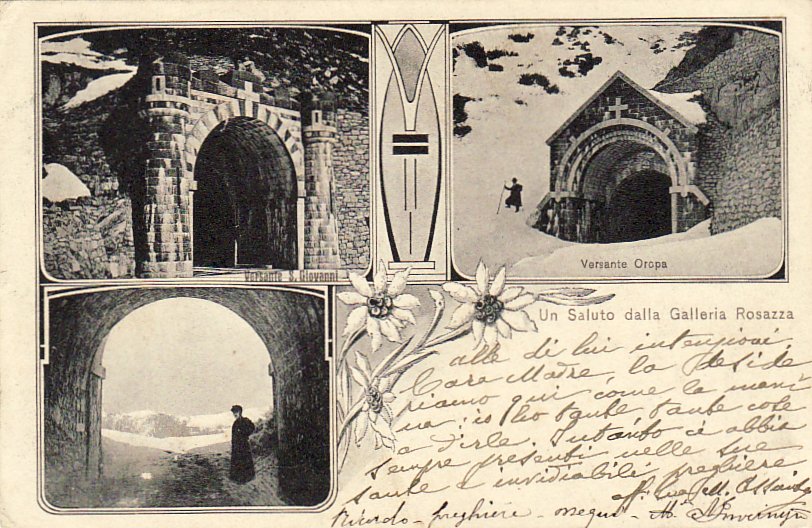 Versante S. Giovanni
Versante Oropa
Un Saluto dalla Galleria Rosazza
alle di lui intenzioni.
Cara Madre, la deside
riamo qui come la man
na; io ho tante tante cose
a dirle. Intanto ci abbia
sempre presenti nelle sue
sante e invidiabili preghiere
aff.
Ricordo - preghiere - ossequi -